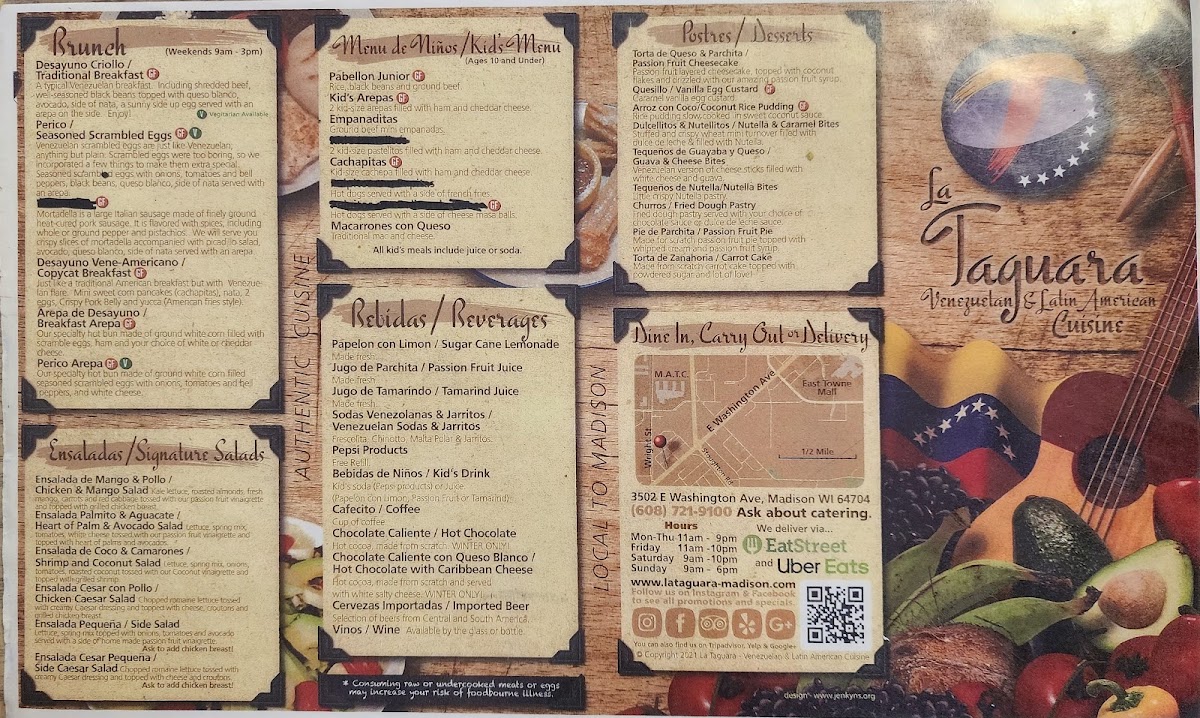 Brunch
(Weekends 9am - 3pm)
Desayuno Criollo /
Traditional Breakfast GF
A typical Venezuelan breakfast. Including shredded beef,
well-seasoned black beans topped with queso blanco,
avocado, side of nata, a sunny side up egg served with an
arepa on the side. Enjoy!
V Vegitarian Available
Perico /
Seasoned Scrambled Eggs GF V
Venezuelan scrambled eggs are just like Venezuelan;
anything but plain. Scrambled eggs were too boring, so we
incorporated a few things to make them extra special.
Seasoned scrambled eggs with onions, tomatoes and bell
peppers, black beans, queso blanco, side of nata served with
an arepa.
GF
Mortadella is a large Italian sausage made of finely ground
heat-cured pork sausage. It is flavored with spices, including
whole or ground pepper and pistachios. We will serve you
crispy slices of mortadella accompanied with picadillo salad,
avocado, queso blanco, side of nata served with an arepa.
Desayuno Vene-Americano /
Copycat Breakfast GF
Just like a traditional American breakfast but with Venezue-
lan flare. Mini sweet corn pancakes (cachapitas), nata, 2
eggs, Crispy Pork Belly and yucca (American fries style).
Arepa de Desayuno /
Breakfast Arepa GF
Our specialty hot bun made of ground white corn filled with
scramble eggs, ham and your choice of white or cheddar
cheese.
Perico Arepa GF V
Our specialty hot bun made of ground white corn filled
seasoned scrambled eggs with onions, tomatoes and bell
peppers, and white cheese.
Ensaladas/Signature Salads
Ensalada de Mango & Pollo /
Chicken & Mango Salad Kale lettuce, roasted almonds, fresh
mango, carrots and red cabbage tossed with our passion fruit vinaigrette
and topped with grilled chicken breast.
Ensalada Palmito & Aguacate /
Heart of Palm & Avocado Salad Lettuce, spring mix,
tomatoes, white cheese tossed with our passion fruit vinaigrette and
topped with heart of palms and avocado.
Ensalada de Coco & Camarones /
Shrimp and Coconut Salad Lettuce, spring mix, onions,
tomatoes, roasted coconut tossed with our Coconut vinaigrette and
topped with grilled shrimp.
Ensalada Cesar con Pollo /
Chicken Caesar Salad Chopped romaine lettuce tossed
with creamy Caesar dressing and topped with cheese, croutons and
grilled chicken breast.
Ensalada Pequeña / Side Salad
Lettuce, spring mix topped with onions, tomatoes and avocado
served with a side of home made passion fruit vinaigrette.
Ask to add chicken breast!
Ensalada Cesar Pequeña /
Side Caesar Salad Chopped romaine lettuce tossed with
creamy Caesar dressing and topped with cheese and croutons.
Ask to add chicken breast!
AUTHENTIC CUISINE
Menu de Niños/Kid's Menu
(Ages 10 and Under)
Pabellon Junior GF
Rice, black beans and ground beef.
Kid's Arepas GF
2 kid-size arepas filled with ham and cheddar cheese.
Empanaditas
Ground beef mini empanadas.
2 kid-size pastelitos filled with ham and cheddar cheese.
Cachapitas GF
Kid-size cachapa filled with ham and cheddar cheese.
Hot dogs served with a side of french fries.
GF
Hot dogs served with a side of cheese masa balls.
Macarrones con Queso
Traditional mac and cheese.
All kid's meals include juice or soda.
Bebidas/Beverages
Papelon con Limon / Sugar Cane Lemonade
Made fresh.
Jugo de Parchita / Passion Fruit Juice
Made fresh.
Jugo de Tamarindo / Tamarind Juice
Made fresh.
Sodas Venezolanas & Jarritos /
Venezuelan Sodas & Jarritos
Frescolita, Chinotto, Malta Polar & Jarritos.
Pepsi Products
Free Refill.
Bebidas de Niños / Kid's Drink
Kid's soda (Pepsi products) or Juice
(Papelon con Limon, Passion Fruit or Tamarind)
Cafecito / Coffee
Cup of coffee
Chocolate Caliente / Hot Chocolate
Hot cocoa made from scratch. WINTER ONLY!
Chocolate Caliente con Queso Blanco /
Hot Chocolate with Caribbean Cheese
Hot cocoa, made from scratch and served
with white salty cheese. WINTER ONLY!
Cervezas Importadas / Imported Beer
Selection of beers from Central and South America.
Vinos / Wine Available by the glass or bottle.
* Consuming raw or undercooked meats or eggs
may increase your risk of foodbourne illness.
LOCAL TO MADISON
Postres/Desserts
Torta de Queso & Parchita /
Passion Fruit Cheesecake
Passion fruit layered cheesecake, topped with coconut
flakes and drizzled with our amazing passion fruit syrup.
Quesillo / Vanilla Egg Custard GF
Caramel vanilla egg custard.
Arroz con Coco/Coconut Rice Pudding GF
Rice pudding slow cooked in sweet coconut sauce.
Dulcellitos & Nutellitos / Nutella & Caramel Bites
Stuffed and crispy wheat mini turnover filled with
dulce de leche & filled with Nutella.
Tequeños de Guayaba y Queso /
Guava & Cheese Bites
Venezuelan version of cheese sticks filled with
white cheese and guava.
Tequeños de Nutella/Nutella Bites
Little crispy Nutella pastry.
Churros / Fried Dough Pastry
Fried dough pastry served with your choice of
chocolate sauce or dulce de leche sauce.
Pie de Parchita / Passion Fruit Pie
Made for scratch passion fruit pie topped with
whipped cream and passion fruit syrup.
Torta de Zanahoria / Carrot Cake
Made from scratch carrot cake topped with
powdered sugar and lot of love!
Dine In, Carry Out or Delivery
M.A.T.C.
E Washington Ave
East Towne
Mall
Wright St
Stoughton Rd
1/2 Mile
3502 E Washington Ave, Madison WI 64704
(608) 721-9100 Ask about catering.
Hours
Mon-Thu 11am - 9pm
Friday 11am -10pm
Saturday 9am -10pm
Sunday 9am - 6pm
We deliver via...
EatStreet
and Uber Eats
www.lataguara-madison.com
Follow us on Instagram & Facebook
to see all promotions and specials.
You can also find us on Tripadvisor, Yelp & Google+
© Copyright 2021 La Taguara - Venezuelan & Latin American Cuisine
design - www.jenkyns.org
La
Taguara
Venezuelan & Latin American
Cuisine